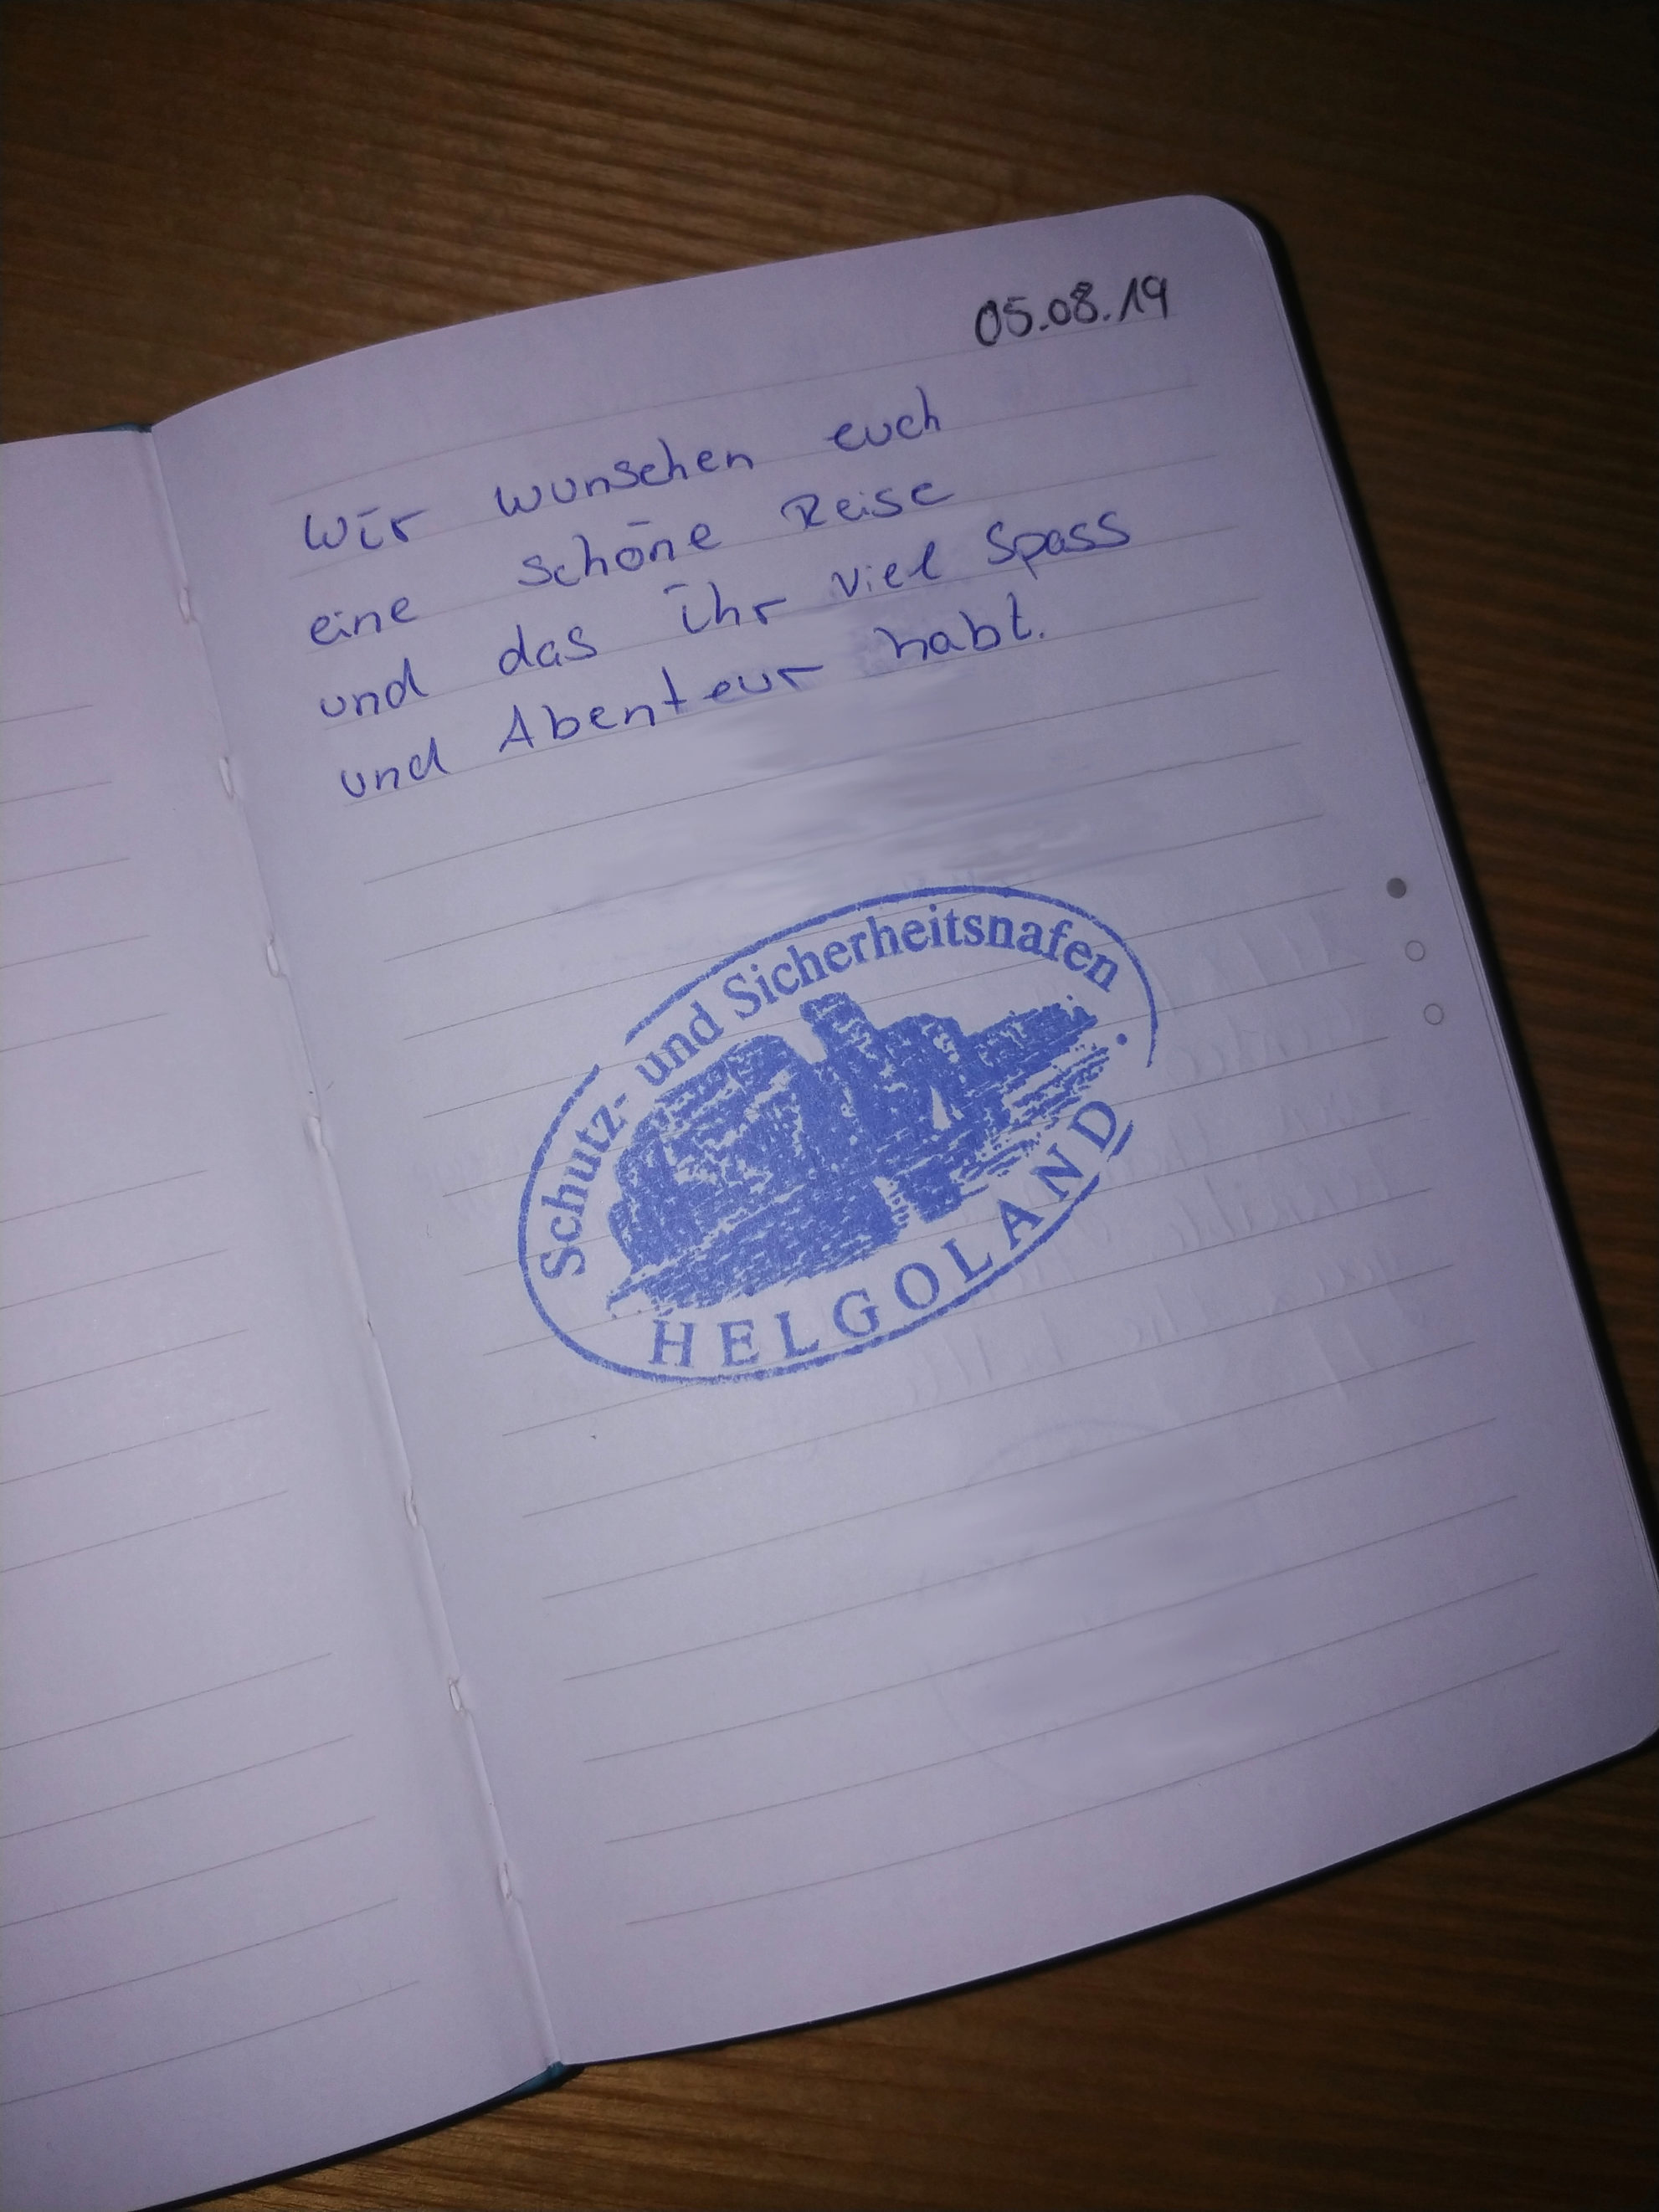 05.08.19
Wir wunschen euch
eine schöne Reise
und das ihr viel Spass
und Abenteur habt.
Schutz- und Sicherheitsnafen
HELGOLAND